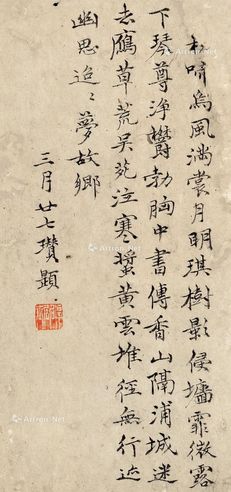 松啼烏風滿裳月明琪樹影侵墻霏微露
下琴尊淨鬱勃胸中書傳香山隔浦城迷
去鴈草荒吳苑泣寒螿黃雲堆徑無行迹
幽思迢〻夢故鄉
三月廿七瓚顕
Artron.Net